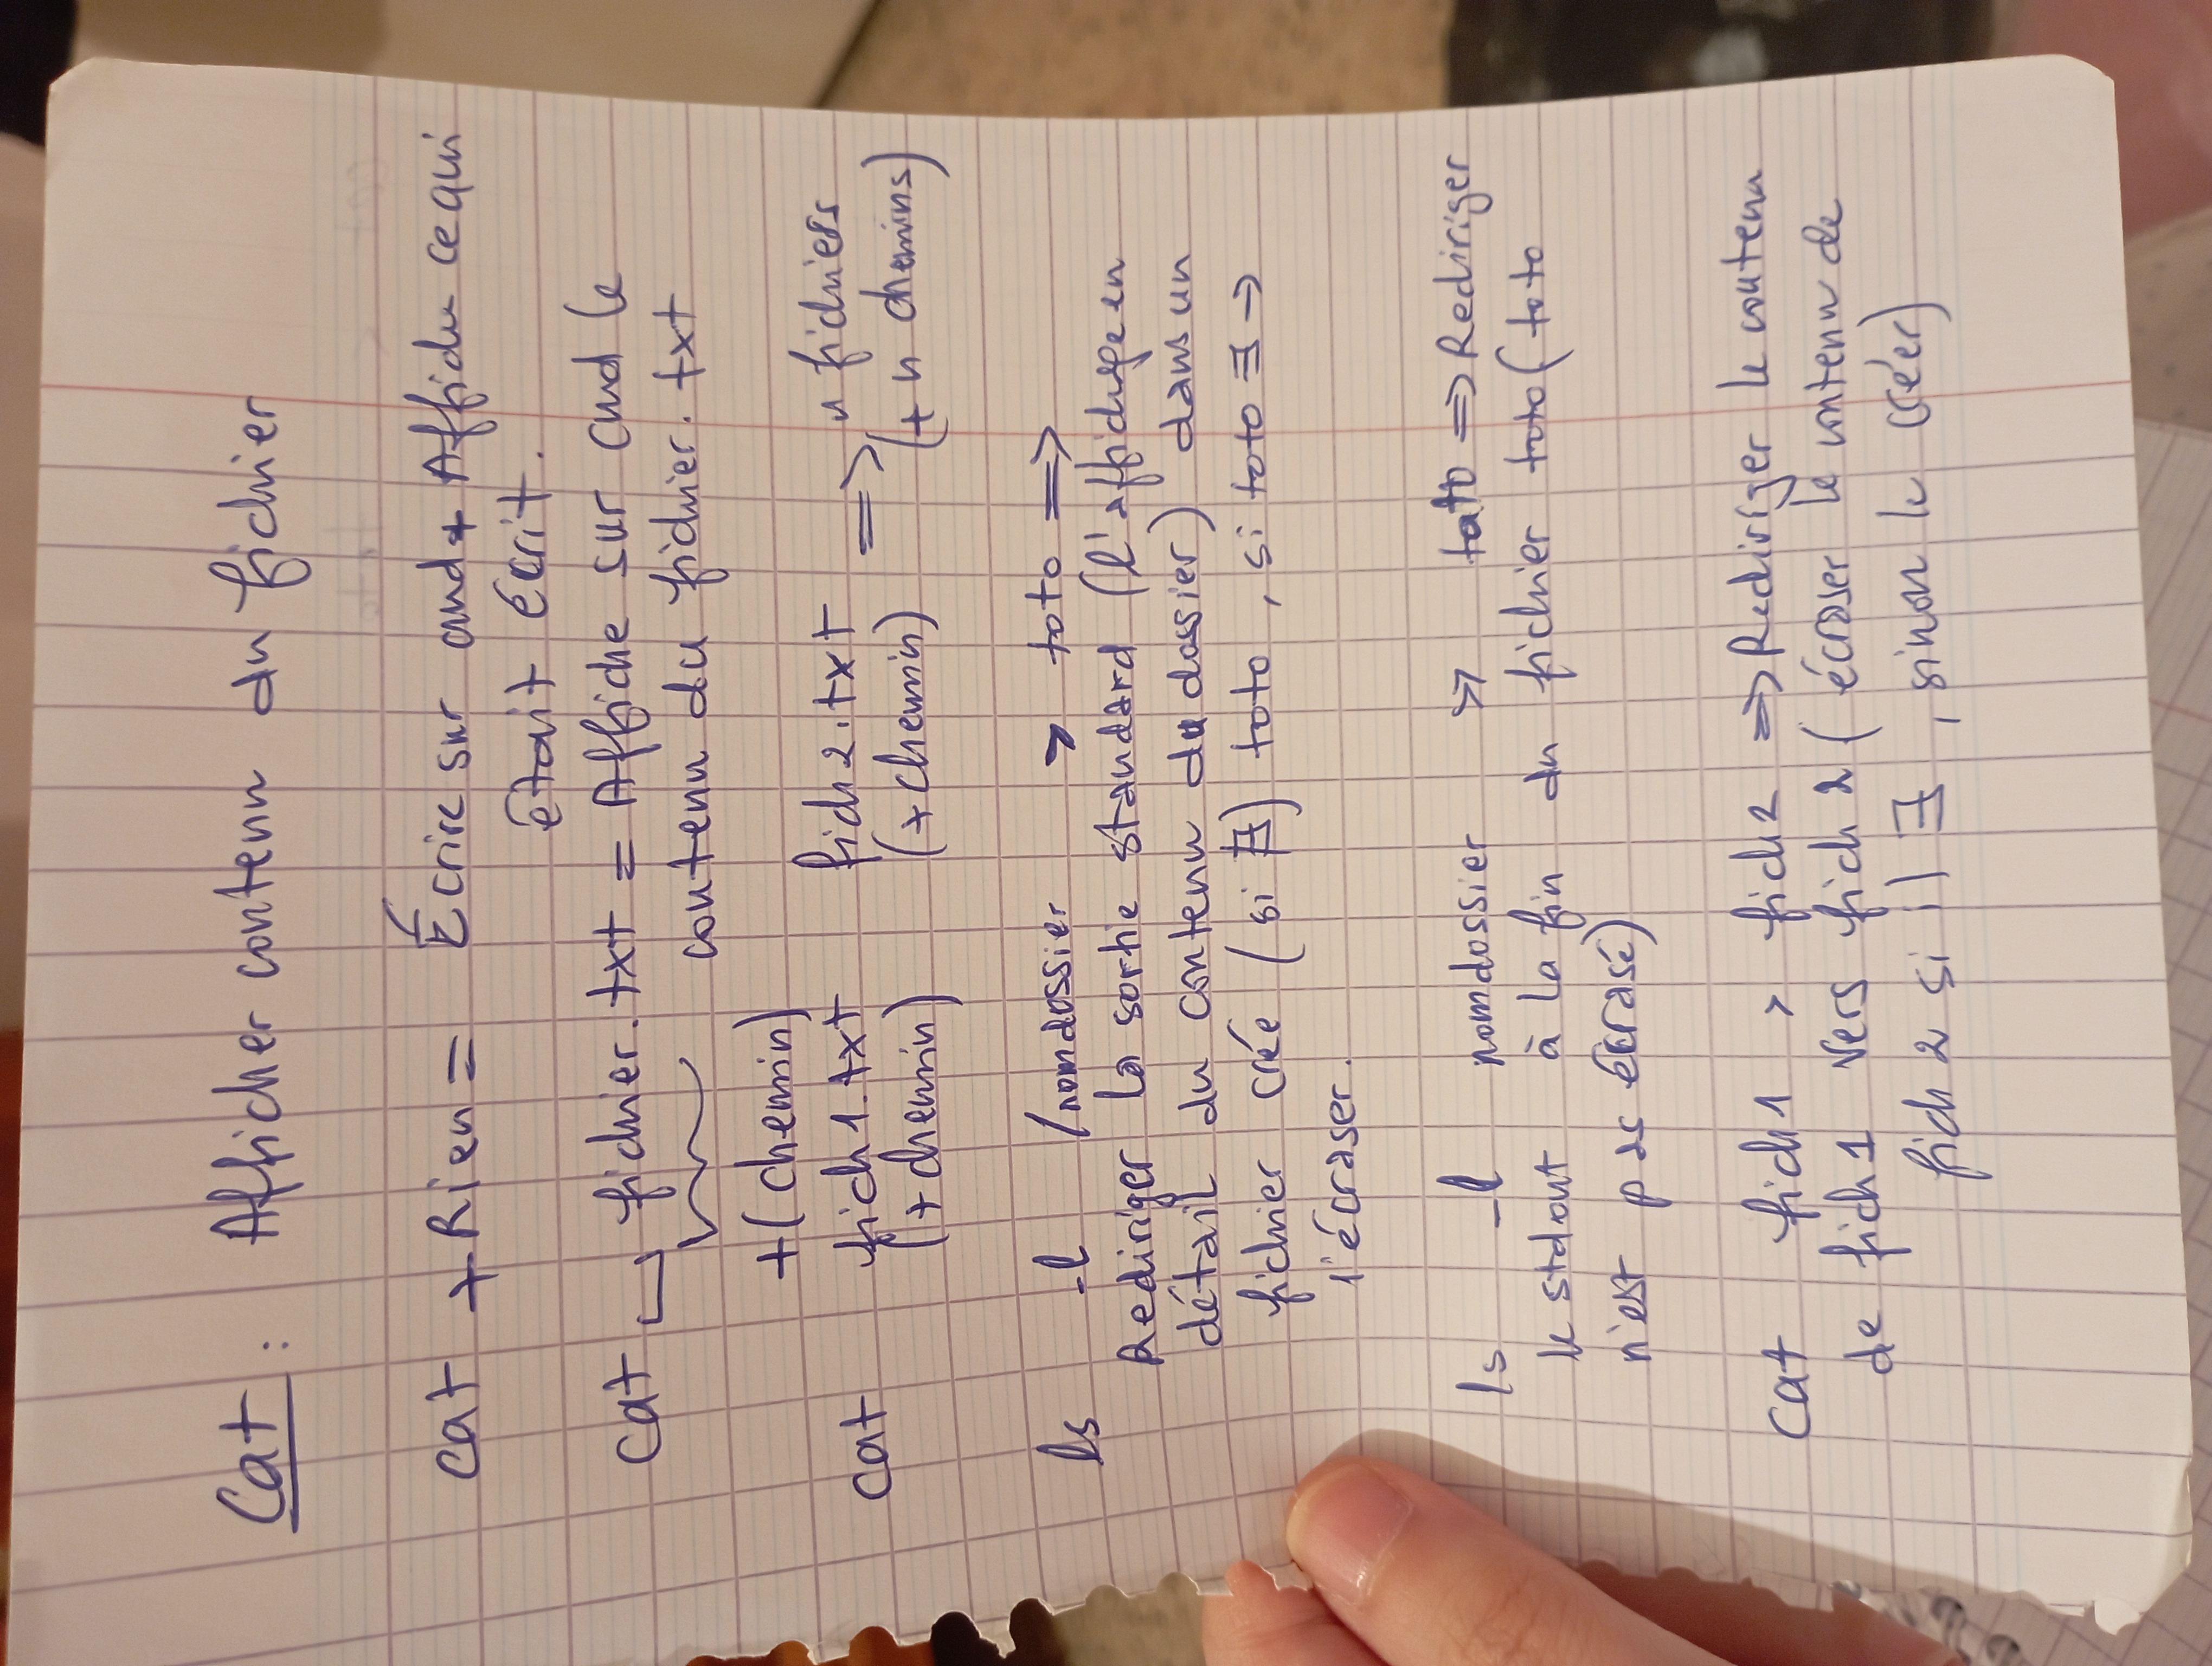 Cat : Afficher contenu du fichier
cat + Rien = Écrire sur cmd + Affiche ce qui
était écrit.
cat ⎵ fichier.txt = Affiche sur cmd le
contenu du fichier.txt
+(chemin)
cat fich1.txt fich2.txt => n fichiers
(+chemin) (+chemin) (+ n chemins)
ls -l /nomdossier > toto =>
Rediriger la sortie standard (l'affichage en
détail du contenu du dossier) dans un
fichier crée (si ∄) toto, si toto ∃ →
l'écraser.
ls -l nomdossier >> toto => Rediriger
le stdout à la fin du fichier toto (toto
n'est pas écrasé)
cat fich1 > fich2 => Rediriger le contenu
de fich1 vers fich2 (écraser le contenu de
fich2 si il ∃, sinon le créer)